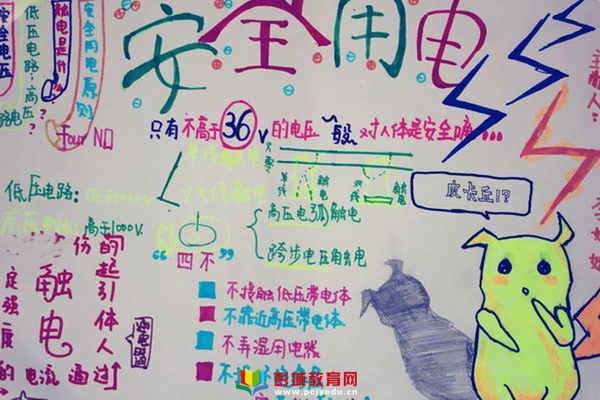 安全用电
安全电压
低压电路:高压?
触电是什么
安全用电原则
Four NO
主题人:
只有不高于36V的电压一般对人体是安全哦...
单线触电
双线触电
火 零
单线触电
双线触电
低压电路:低于1000V
高压电路:高于1000V.
高压电弧触电
跨步电压触电
皮卡丘!?
“四不”
不接触低压带电体
不靠近高压带电体.
不弄湿用电器
触电
人体引起的
伤
定强度
的电流通过
彭城教育网
www.pcjyedu.cn